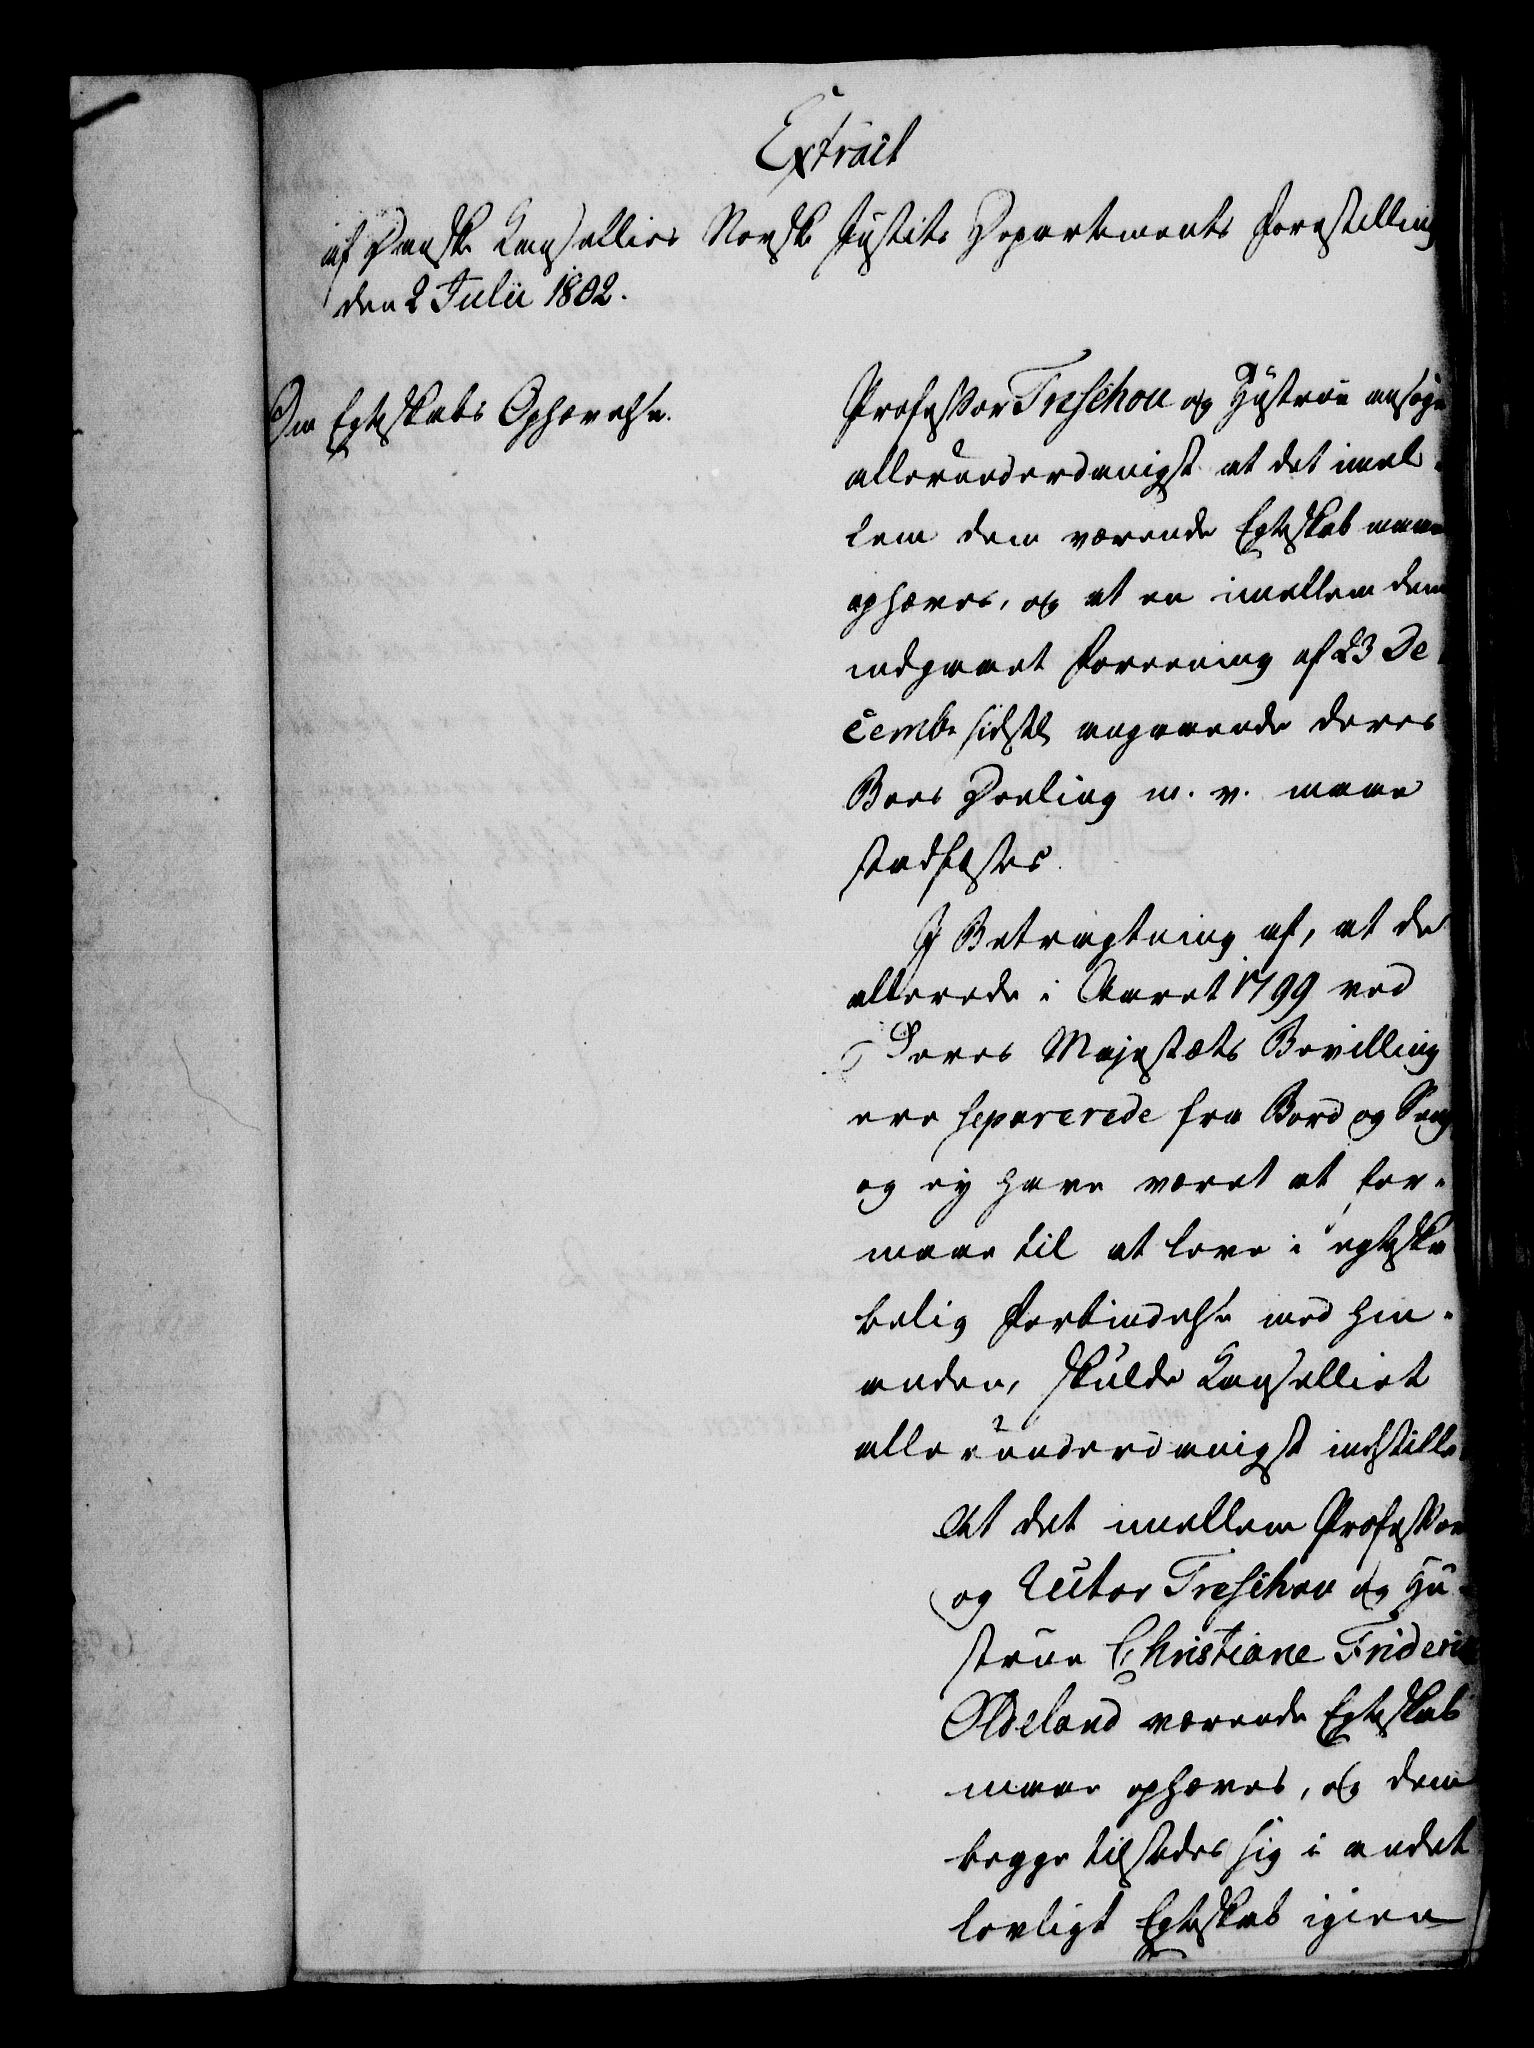 Extract
af Danske Cancellies Norske Justits Departements Forestilling
den 2 Julii 1802.
Om Egteskabs Ophævelse.
Professor Treschou og Hustrue ansøge
allerunderdanigst at det imel-
lem dem værende Egteskab maae
ophæves, og at en imellem dem
indgaaet Foreening af 23 De-
cembr sidstl. angaaende deres
Boes Deeling m. v. maae
stadfæstes.
I Betragtning af, at de
allerede i Aaret 1799 ved
Deres Majestæts Bevilling
ere separerede fra Bord og Seng
og ey have været at for-
maae til at leve i egteska-
belig Forbindelse med hin-
anden, skulde Cancelliet
allerunderdanigst indstille
At det imellem Professor
og Rector Treschou og Hu-
strue Christiane Frideric
Oldeland værende Egteskab
maae ophæves, og dem
begge tilstædes sig i andet
lovligt Egteskab igien